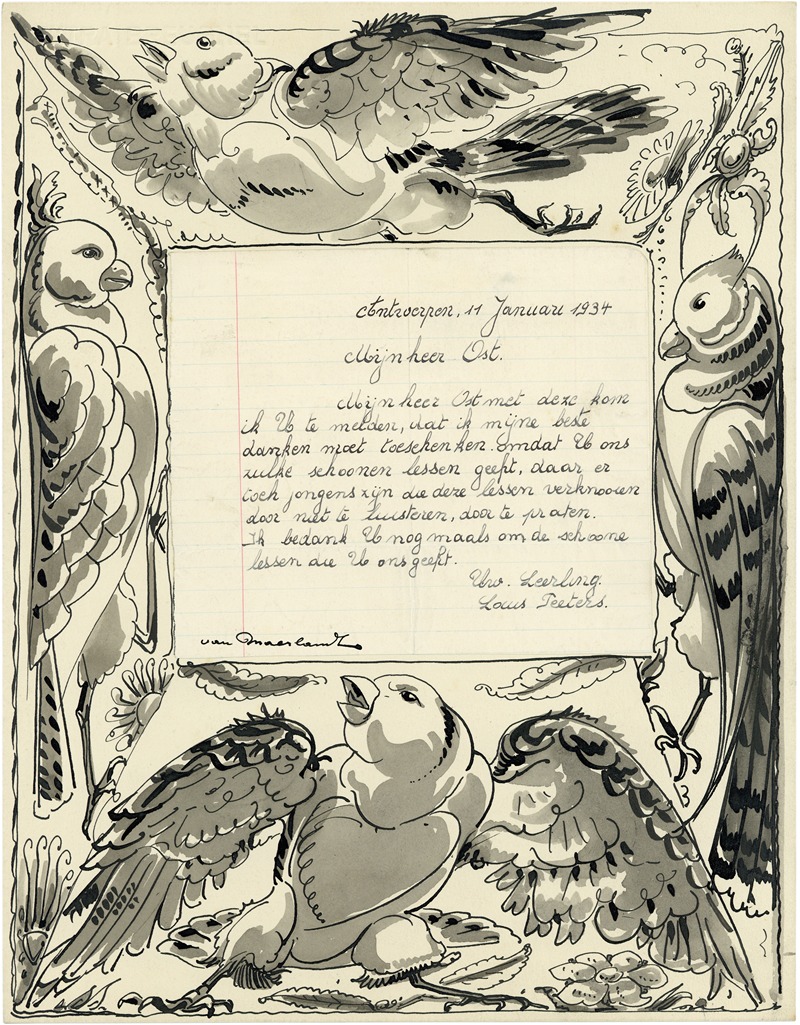 Antwerpen, 11 Januari 1934
Mijnheer Ost.
Mijnheer Ost met deze kom
ik U te melden, dat ik mijne beste
danken moet toeschenken. Omdat U ons
zulke schoonen lessen geeft, daar er
toch jongens zijn die deze lessen verknooien
door niet te luisteren, door te praten.
Ik bedank U nog maals om de schoone
lessen die U ons geeft.
Uw. Leerling.
Louis Peeters.
van Maerlandt